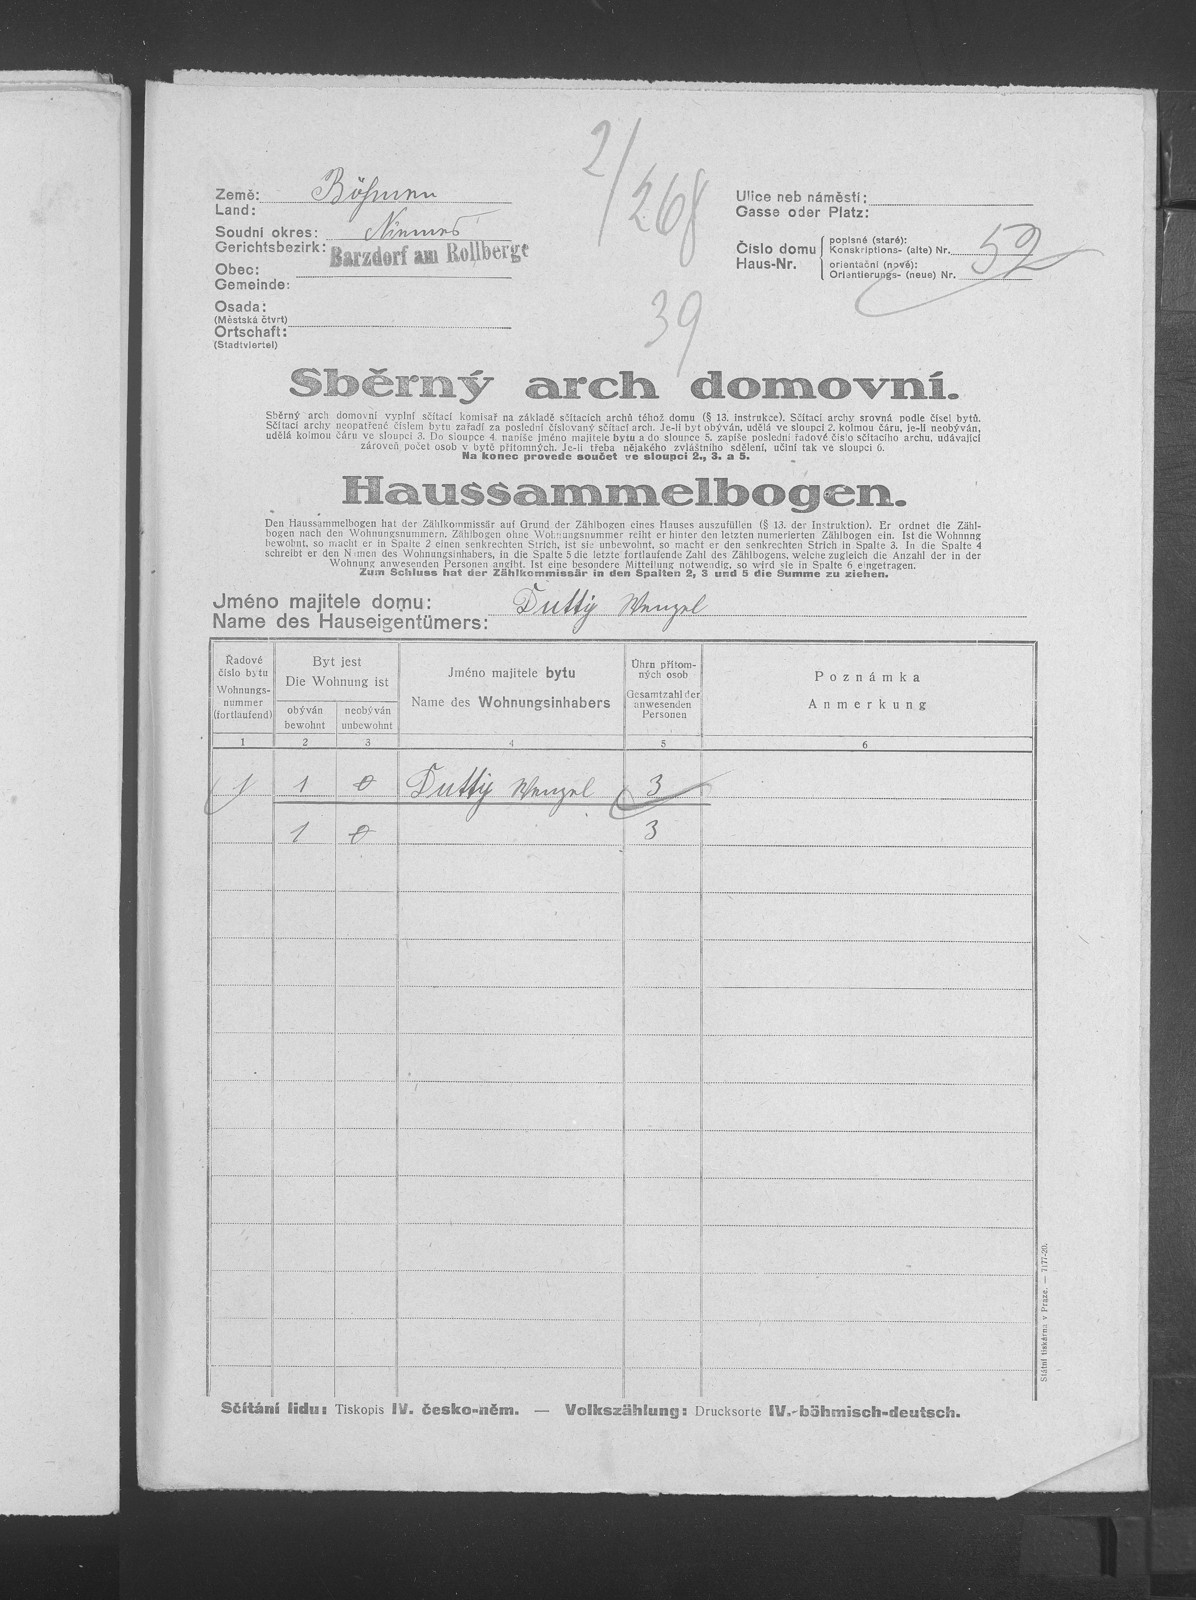 2/268
39
Země: Böhmen
Land:
Soudní okres: Niemes
Gerichtsbezirk: Barzdorf am Rollberge
Obec:
Gemeinde:
Osada:
(Městská čtvrt)
Ortschaft:
(Stadtviertel)
Ulice neb náměstí:
Gasse oder Platz:
Číslo domu popisné (staré):
Konskriptions- (alte) Nr. 52
Haus-Nr. orientační (nové):
Orientierungs- (neue) Nr.
Sběrný arch domovní.
Sběrný arch domovní vyplní sčítací komisař na základě sčítacích archů téhož domu (§ 13. instrukce). Sčítací archy srovná podle čísel bytů.
Sčítací archy neopatřené číslem bytu zařadí za poslední číslovaný sčítací arch. Je-li byt obýván, udělá ve sloupci 2. kolmou čáru, je-li neobýván,
udělá kolmou čáru ve sloupci 3. Do sloupce 4. napíše jméno majitele bytu a do sloupce 5. zapíše poslední řadové číslo sčítacího archu, udávající
zároveň počet osob v bytě přítomných. Je-li třeba nějakého zvláštního sdělení, učiní tak ve sloupci 6.
Na konec provede součet ve sloupci 2., 3. a 5.
Haussammelbogen.
Den Haussammelbogen hat der Zählkommissär auf Grund der Zählbogen eines Hauses auszufüllen (§ 13. der Instruktion). Er ordnet die Zähl-
bogen nach den Wohnungsnummern. Zählbogen ohne Wohnungsnummer reiht er hinter den letzten numerierten Zählbogen ein. Ist die Wohnung
bewohnt, so macht er in Spalte 2 einen senkrechten Strich, ist sie unbewohnt, so macht er den senkrechten Strich in Spalte 3. In die Spalte 4
schreibt er den Namen des Wohnungsinhabers, in die Spalte 5 die letzte fortlaufende Zahl des Zählbogens, welche zugleich die Anzahl der in der
Wohnung anwesenden Personen angibt. Ist eine besondere Mitteilung notwendig, so wird sie in Spalte 6 eingetragen.
Zum Schluss hat der Zählkommissär in den Spalten 2, 3 und 5 die Summe zu ziehen.
Jméno majitele domu: Tutty Wenzel
Name des Hauseigentümers:
Řadové číslo bytu
Wohnungs-nummer (fortlaufend)
Byt jest
Die Wohnung ist
obýván
bewohnt
neobýván
unbewohnt
Jméno majitele bytu
Name des Wohnungsinhabers
Úhrn přítom-ných osob
Gesamtzahl der anwesenden Personen
Poznámka
Anmerkung
1 2 3 4 5 6
1 1 0 Tutty Wenzel 3
1 0 3
Státní tiskárna v Praze. — 7177-20.
Sčítání lidu: Tiskopis IV. česko-něm. — Volkszählung: Drucksorte IV.-böhmisch-deutsch.